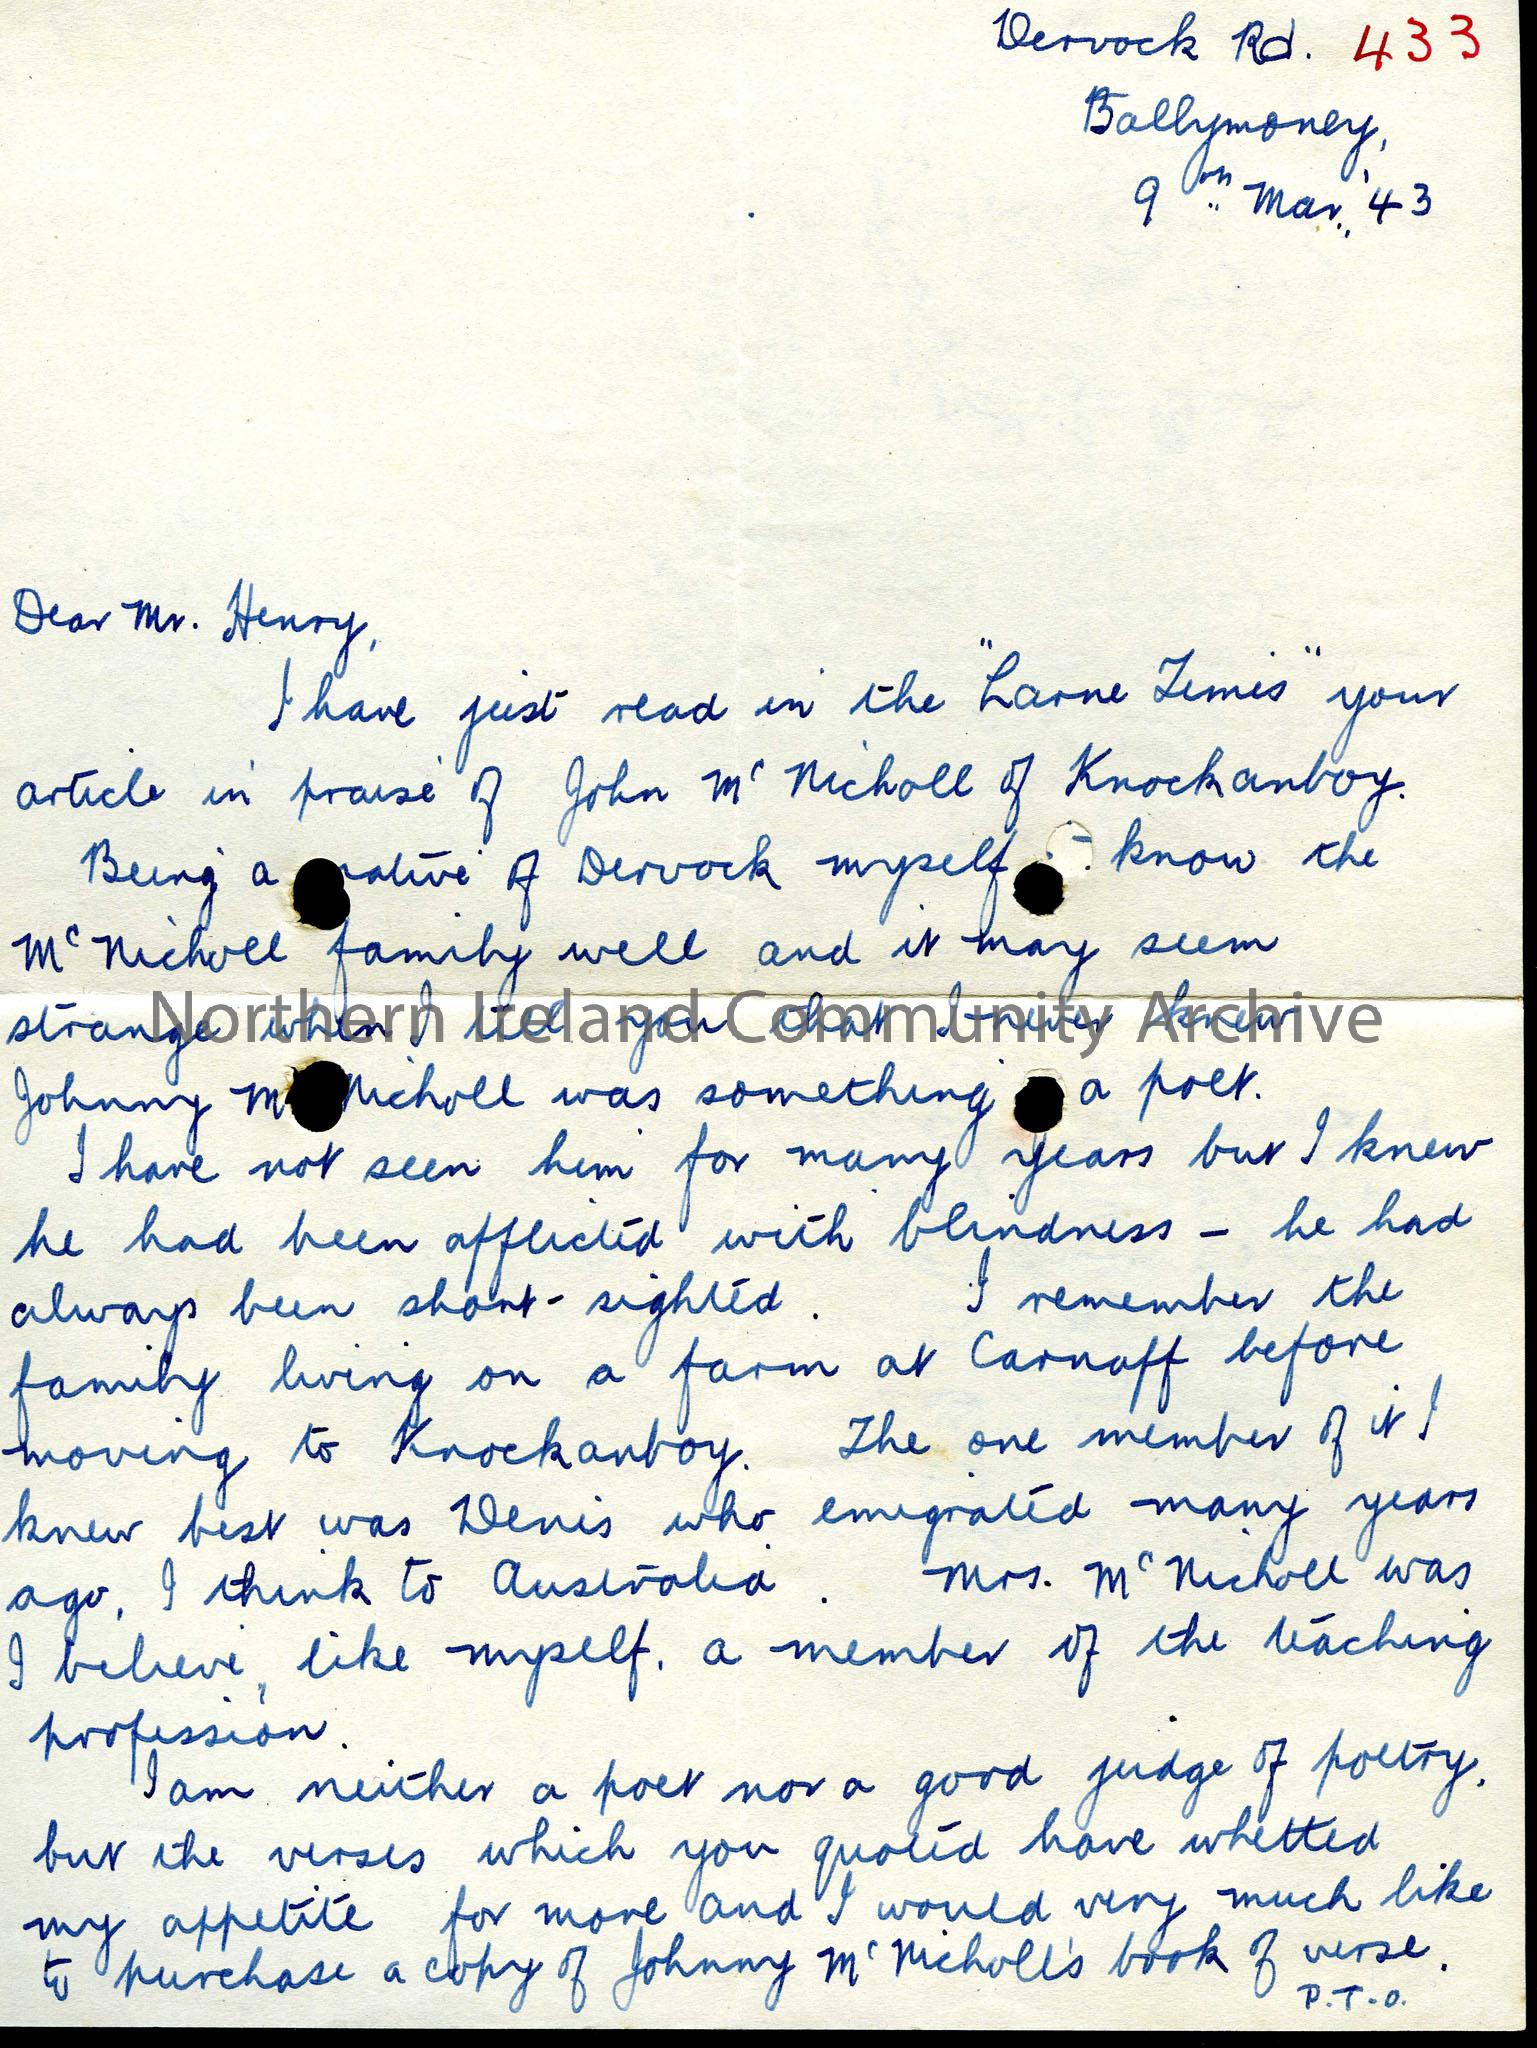 Dervock Rd. 433
Ballymoney,
9th Mar. '43
Dear Mr. Henry,
I have just read in the "Larne Times" your
article in praise of John McNicholl of Knockanboy.
Being a native of Dervock myself I know the
McNicholl family well and it may seem
strange when I tell you that I never knew
Northern Ireland Community Archive
Johnny McNicholl was something a poet.
I have not seen him for many years but I knew
he had been afflicted with blindness – he had
always been short-sighted. I remember the
family living on a farm at Carnaff before
moving to Knockanboy. The one member of it I
knew best was Denis who emigrated many years
ago, I think to Australia. Mrs. McNicholl was
I believe, like myself, a member of the teaching
profession.
I am neither a poet nor a good judge of poetry,
but the verses which you quoted have whetted
my appetite for more and I would very much like
to purchase a copy of Johnny McNicholl's book of verse.
P.T.O.